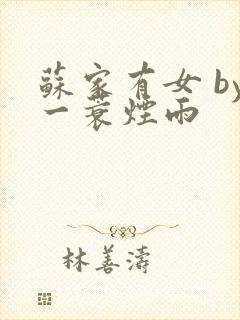 蘇家有女 by
一蓑煙雨
林善濤